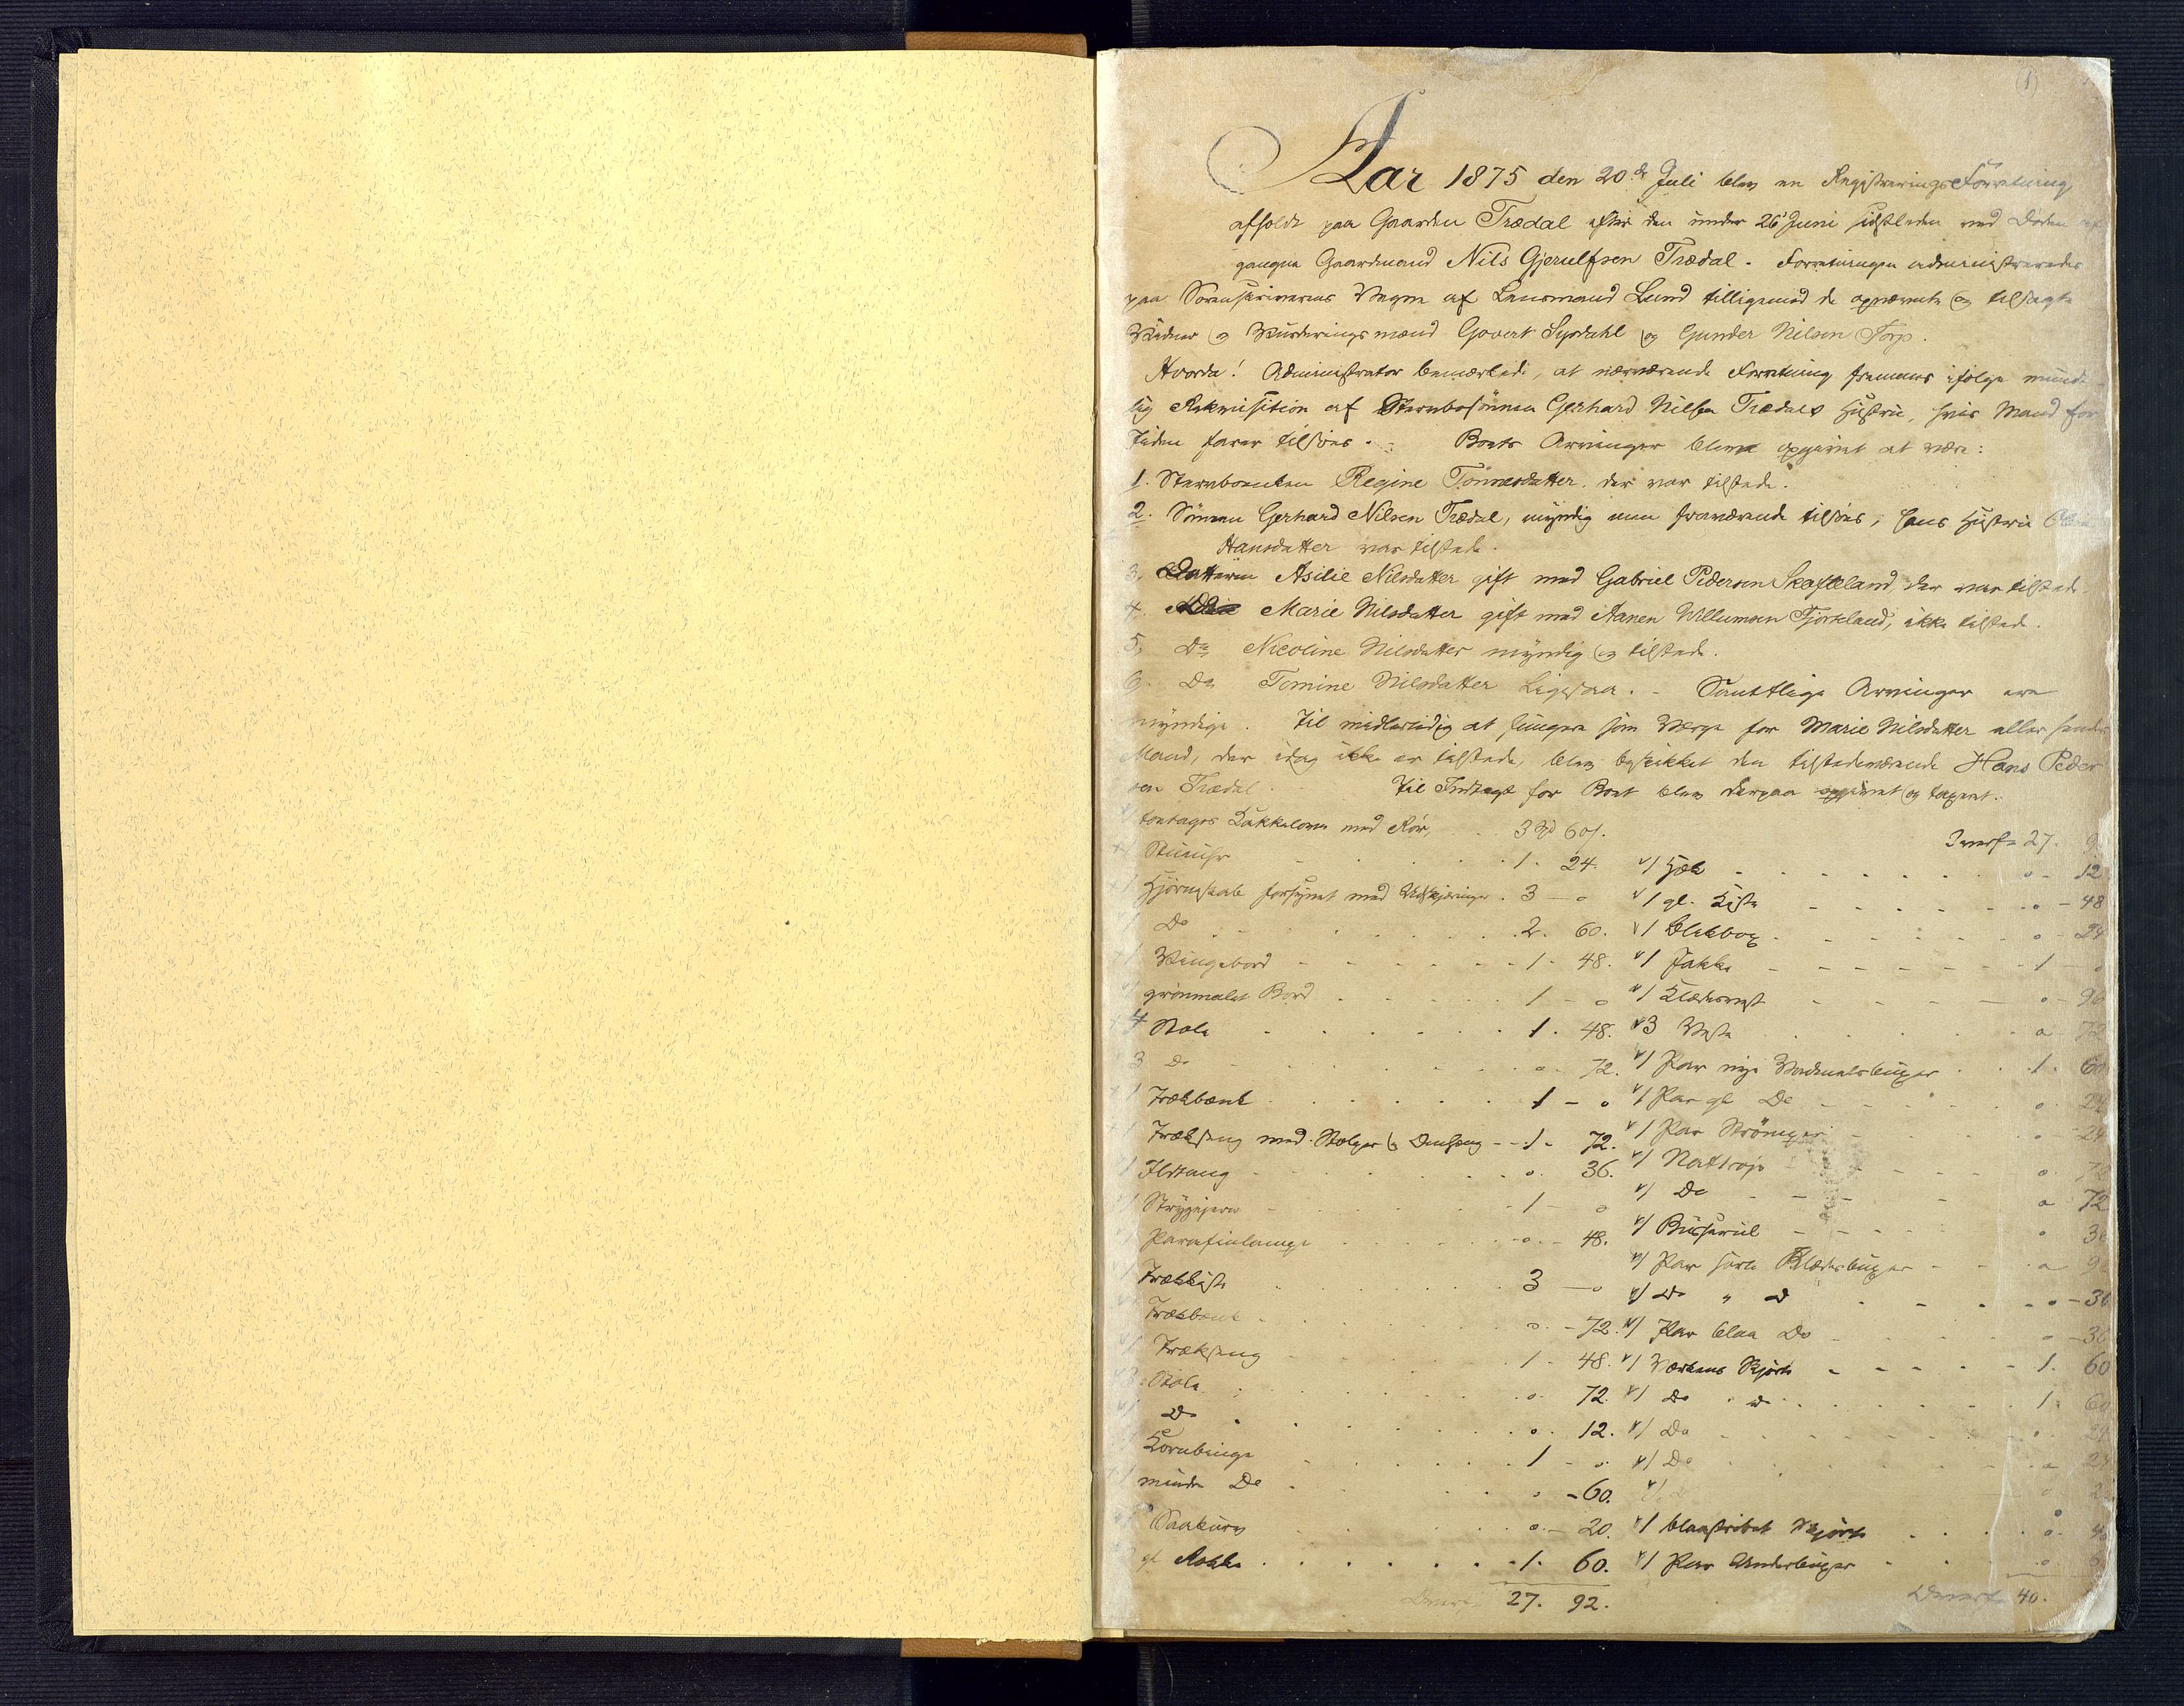 (1)
Aar 1875 den 20de Juli blev en Registrerings Forretning
afholdt paa Gaarden Trædal efter den under 26' Juni sidstleden ved Døden af
gangne Gaardmand Nils Gjerulfsen Trædal. Forretningen administreredes
paa Sorenskriverens Vegne af Lensmand Lund tilligemed de opnævnte og tilsagte
Vidner og Vurderingsmænd Govert Syrdahl og Gunder Nilsen Torp.
Hvorda! Administrator bemærkede, at nærværende Forretning fremmes ifølge mundt-
lig Rekvisition af Stervbosønnen Gerhard Nilsen Trædals Hustru, hvis Mand for
Tiden farer tilsøes. Boets Arvinger bleve opgivet at være:
1. Stervboenken Regine Tönnesdatter, der var tilstede.
2. Sönnen Gerhard Nilsen Trædal, myndig men fraværende tilsøes, hans Hustru
Hansdatter var tilstede.
3, Datteren Asilie Nilsdatter gift med Gabriel Pedersen Skofteland, der var tilstede.
4. Marie Nilsdatter gift med Aanen Willumsen Fjorkland, ikke tilstede.
5, Do Nicoline Nilsdatter myndig og tilstede.
6. Do Tomine Nilsdatter Ligesaa. - Samtlige Arvinger ere
myndige. Til midlertidig at fungere som Værge for Marie Nilsdatter eller hendes
Mand, der idag ikke er tilstede, blev beskikket den tilstedeværende Hans Peder
sen Trædal. Til Indtægt for Boet blev derpaa opgivet og taxeret.
toetages Kakkelovn med Rør, 3 Spd 60 s.
1 Stuuhr 1. 24.
1 Hjørneskab forsynet med Udskjæringer. 3 - o
1 Do 2. 60.
1 Vingebord 1. 48.
1 grønmalet Bord 1 - o
4 Stole 1. 48.
3 Do o. 72.
1 Trækbænk 1 - o
1 Trækseng med Stolper og Omheng 1. 72.
1 Ildtang o. 36.
1 Strygejern 1 - o
1 Parafinlampe o. 48.
1 Trækkiste 3 - o
Trækbænk o. - 72.
1 Trækseng 1 - 48.
3 Stole o. 72.
1 Do o. 12.
Kornbinge 1 - o
1 mindre Do o - 60.
Saakurv o. - 20.
gl Rokke 1. 60.
27. 92.
Transp 27. 9
v/1 Hæk o - 12
v/1 gl. Kiste o - 48
v/1 Blikbox o - 24
v/1 Jakke 1 - o
v/1 Klædesvest o - 96
v/3 Veste o 72
v/1 Par nye Vadmelsbuxer 1. 60
v/1 Par gl Do o. 24
v/1 Par Strömper o - 24
v/1 Nattrøje o.
v/1 Do o 72
v/1 Busserul o 36
v/1 Par sorte Klædesbuxer o
v/1 Do " D o - 36
v/1 Par blaa Do o - 36
v/1 Værkens Skjørt 1. 60
v/1 Do 1. 60
v/1 Do
v/1 Do
v/1 blaastribet Skjørt o.
v/1 Par Underbuxer o
40.